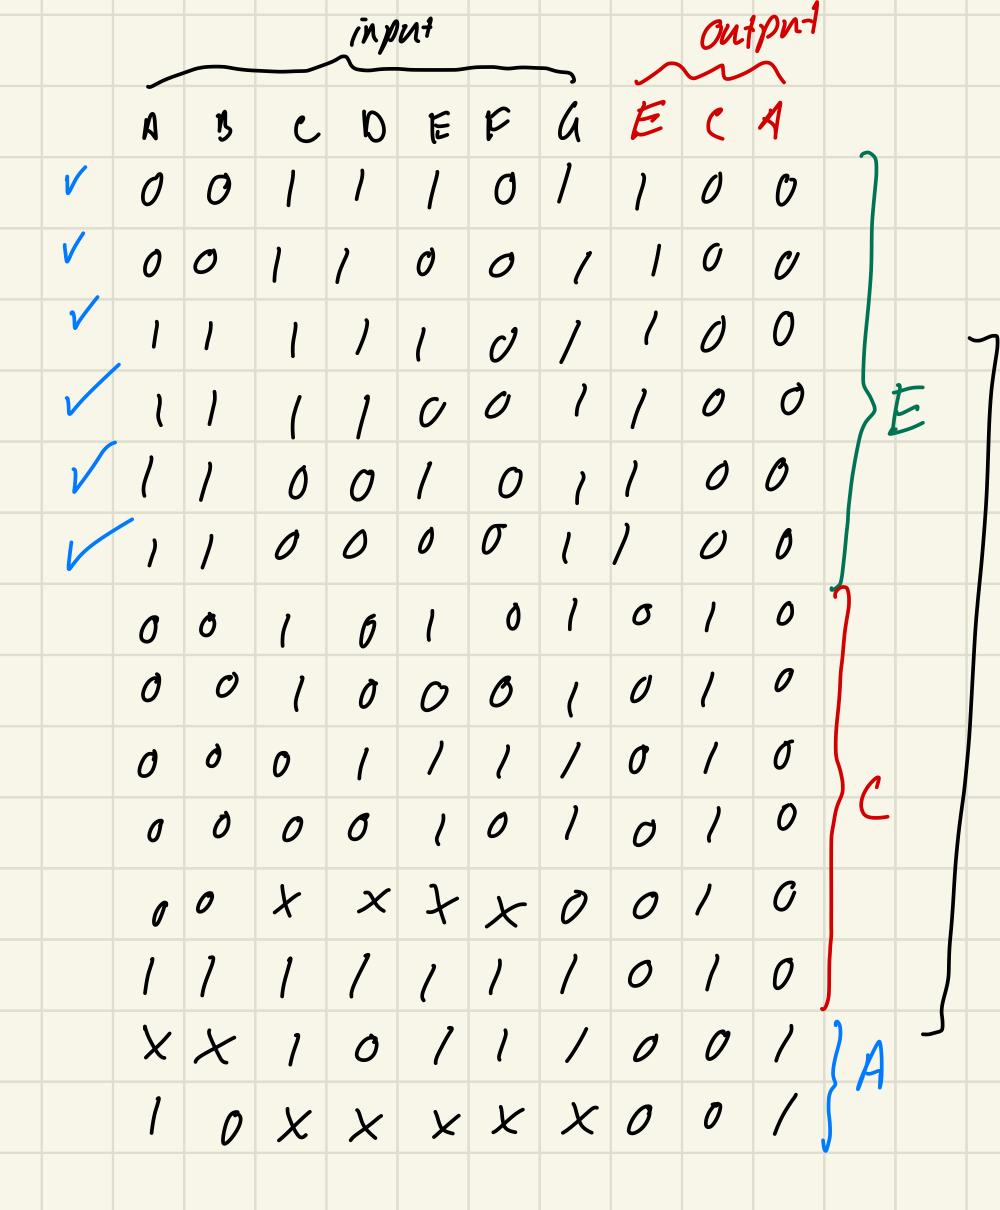 input output
A B C D E F G E C A
0 0 1 1 1 0 1 1 0 0
0 0 1 1 0 0 1 1 0 0
1 1 1 1 1 0 1 1 0 0
1 1 1 1 0 0 1 1 0 0 E
1 1 0 0 1 0 1 1 0 0
1 1 0 0 0 0 1 1 0 0
0 0 1 0 1 0 1 0 1 0
0 0 1 0 0 0 1 0 1 0
0 0 0 1 1 1 1 0 1 0
0 0 0 0 1 0 1 0 1 0 C
0 0 X X X X 0 0 1 0
1 1 1 1 1 1 1 0 1 0
X X 1 0 1 1 1 0 0 1 A
1 0 X X X X X 0 0 1